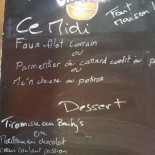 Tout
maison !
Ce Midi
Faux-filet Lorrain
ou
Parmentier de canard confit au
ou
Mc'n cheese au potiron
Dessert
Tiramisu au Bailey's
ou
Moelleux au chocolat
cœur coulant passion